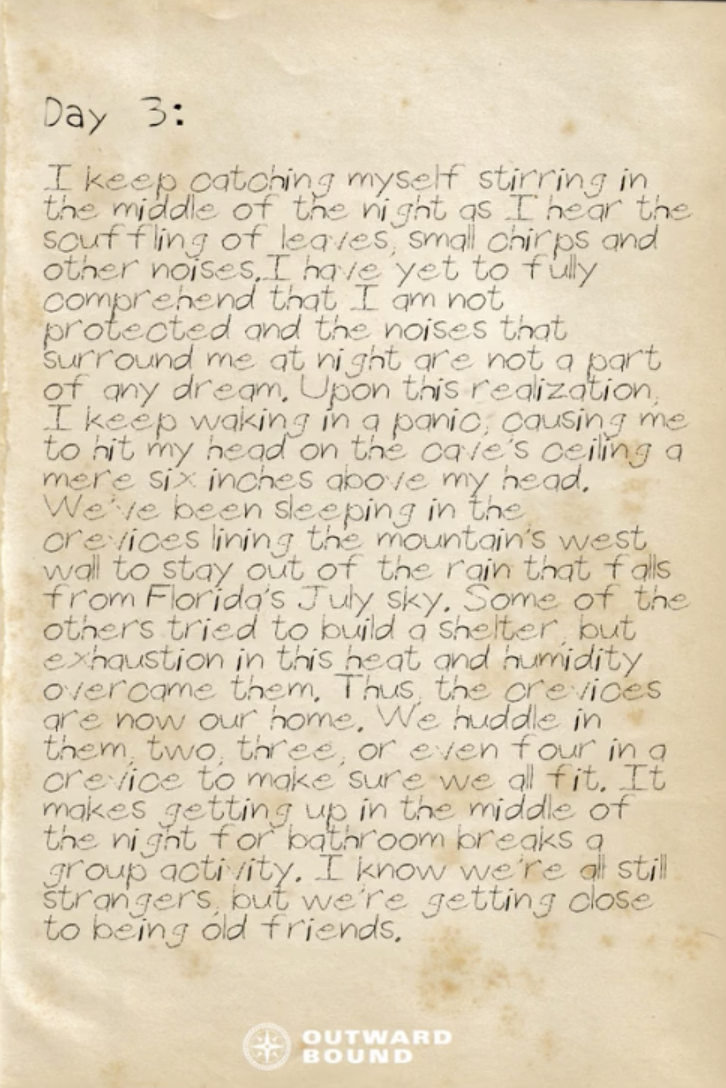 Day 3:
I keep catching myself stirring in
the middle of the night as I hear the
scuffling of leaves, small chirps and
other noises. I have yet to fully
comprehend that I am not
protected and the noises that
surround me at night are not a part
of any dream. Upon this realization,
I keep waking in a panic, causing me
to hit my head on the cave's ceiling a
mere six inches above my head.
We've been sleeping in the
crevices lining the mountain's west
wall to stay out of the rain that falls
from Florida's July sky. Some of the
others tried to build a shelter, but
exhaustion in this heat and humidity
overcame them. Thus, the crevices
are now our home. We huddle in
them, two, three, or even four in a
crevice to make sure we all fit. It
makes getting up in the middle of
the night for bathroom breaks a
group activity. I know we're all still
strangers, but we're getting close
to being old friends.
OUTWARD
BOUND